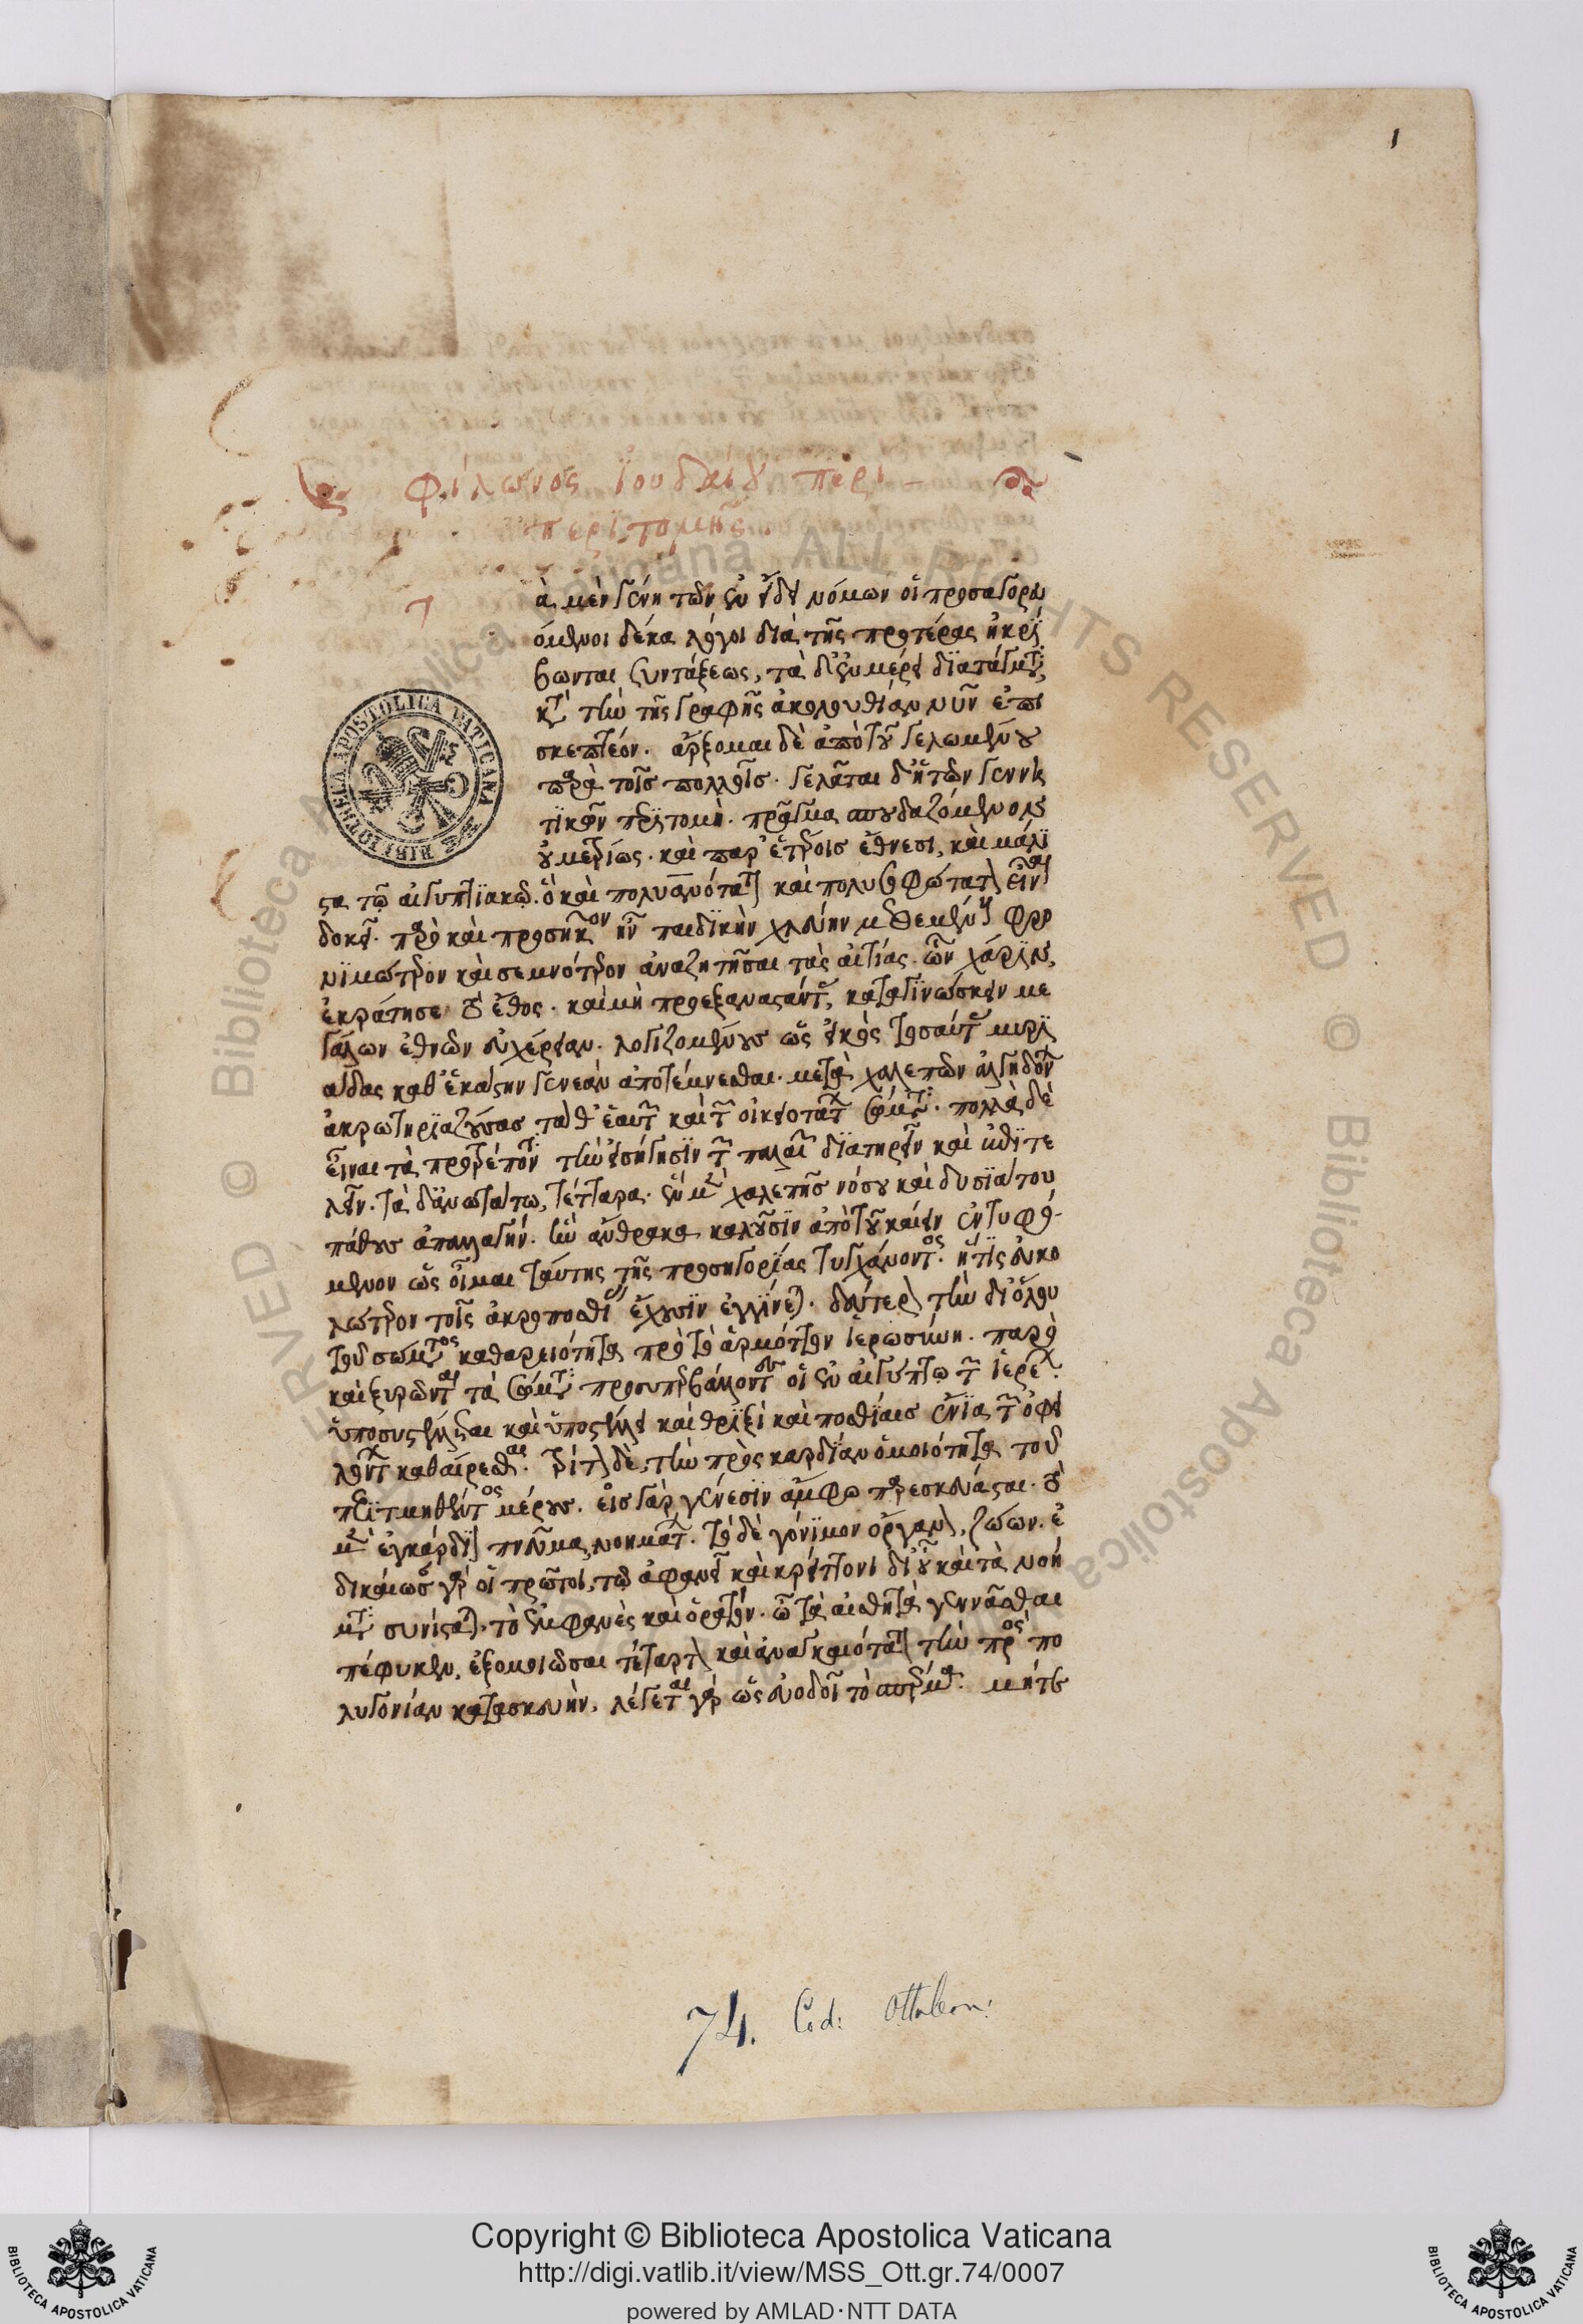 1
Φίλωνος ἰουδαίου περὶ
περιτομῆς
ὰ μὲν γένη τῶν ἐν εἴδει νόμων οἱ προσαγορευ
όμενοι δέκα λόγοι διὰ τῆς προτέρας ἠκρί
βωνται συντάξεως, τὰ δ' ἐν μέρει διατάγματα,
κατὰ τὴν τῆς γραφῆς ἀκολουθίαν νῦν ἐπι
σκεπτέον. ἄρξομαι δὲ ἀπὸ τοῦ γελωμένου
παρὰ τοῖς πολλοῖς. γελᾶται δ' ἡ τῶν γεννη
τικῶν περιτομὴ. πρᾶγμα σπουδαζόμενον
οὐ μετρίως. καὶ παρ' ἑτέροις ἔθνεσι, καὶ μάλι
στα τῷ αἰγυπτιακῷ. ὃ καὶ πολυανότατον καὶ πολυσοφώτατον εἶναι
δοκεῖ. παρὸ καὶ προσῆκον ἦν παιδικὴν χλεύην μεθεμένους φρο
νιμώτερον καὶ σεμνότερον ἀναζητῆσαι τὰς αἰτίας. ὧν χάριν,
ἐκράτησε τὸ ἔθος. καὶ μὴ προεξαναστάντας, καταγινώσκειν με
γάλων ἐθνῶν εὐχέρειαν. λογιζομένους ὡς εἰκὸς τοσαύτας μυρι
άδας καθ' ἑκάστην γενεὰν ἀποτέμνεσθαι. μετὰ χαλεπῶν ἀλγηδόνων
ἀκρωτηριαζούσας τά θ' ἑαυτῶν καὶ τῶν οἰκειοτάτων σώματα. πολλὰ δὲ
εἶναι τὰ προτρέποντα τὴν εἰσήγησιν τῶν παλαιῶν διατηρεῖν καὶ ἐπιτε
λεῖν. τὰ δ' ἀνωτάτω, τέτταρα. ἓν μὲν χαλεπῆς νόσου καὶ δυσιάτου
πάθους ἀπαλλαγήν. ἣν ἄνθρακα καλοῦσιν ἀπὸ τοῦ καίειν ἐντυφό
μενον ὡς οἶμαι ταύτης τῆς προσηγορίας τυγχάνοντος. ἥτις εὐκο
λώτερον τοῖς ἀκροποσθίας ἔχουσιν ἐγγίνεται. δεύτερον τὴν δι' ὅλου
τοῦ σώματος καθαρειότητα πρὸς τὸ ἁρμόττον ἱερωσύνη. παρὸ
καὶ ξυρῶνται τὰ σώματα προσυπερβάλλοντες οἱ ἐν αἰγύπτῳ τῶν ἱερέων.
ὑποσυστέλλεται καὶ ὑποστέλλει καὶ θριξὶ καὶ ποσθίαις ἔνια τῶν ὀφει
λόντων καθαίρεσθαι. τρίτον δὲ, τὴν πρὸς καρδίαν ὁμοιότητα τοῦ
περιτμηθέντος μέρους. εἰς γὰρ γένεσιν ἄμφω παρεσκεύασται. τὸ
μὲν ἐγκάρδιον πνεῦμα, νοημάτων. τὸ δὲ γόνιμον ὄργανον, ζώων. ἐ
δικαίωσαν γὰρ οἱ πρῶτοι, τῷ ἀφανεῖ καὶ κρείττονι δι' οὗ καὶ τὰ νοη
τὰ συνίσταται. τὸ ἐμφανὲς καὶ ὁρατὸν. ᾧ τὰ αἰσθητὰ γεννᾶσθαι
πέφυκεν, ἐξομοιῶσαι τέταρτον καὶ ἀναγκαιότατον τὴν πρὸς πο
λυγονίαν κατασκευὴν, λέγεται γὰρ ὡς εὐοδεῖ τὸ σπέρμα. μήτε
74. Cod: Ottobon:
BIBLIOTHECA APOSTOLICA VATICANA
© Biblioteca Apostolica Vaticana ALL RIGHTS RESERVED © Biblioteca Apostolica
Copyright © Biblioteca Apostolica Vaticana
http://digi.vatlib.it/view/MSS_Ott.gr.74/0007
powered by AMLAD·NTT DATA
BIBLIOTECA APOSTOLICA VATICANA
BIBLIOTECA APOSTOLICA VATICANA